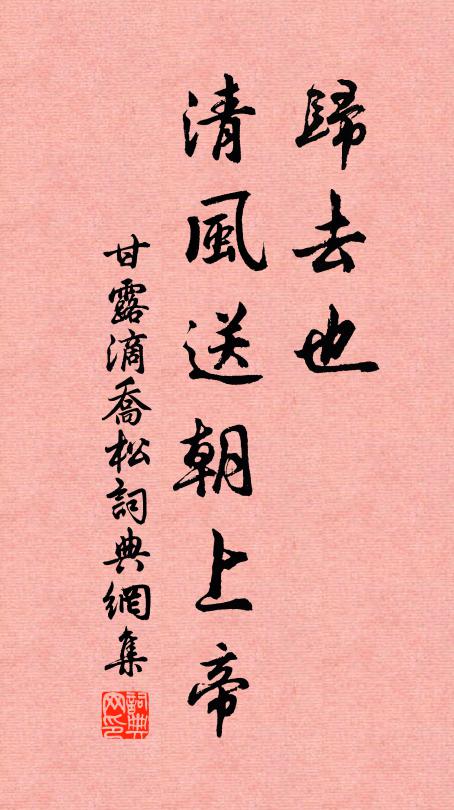 歸去也
清風送朝上帝
甘露滴喬松詞典網集
詞典网印